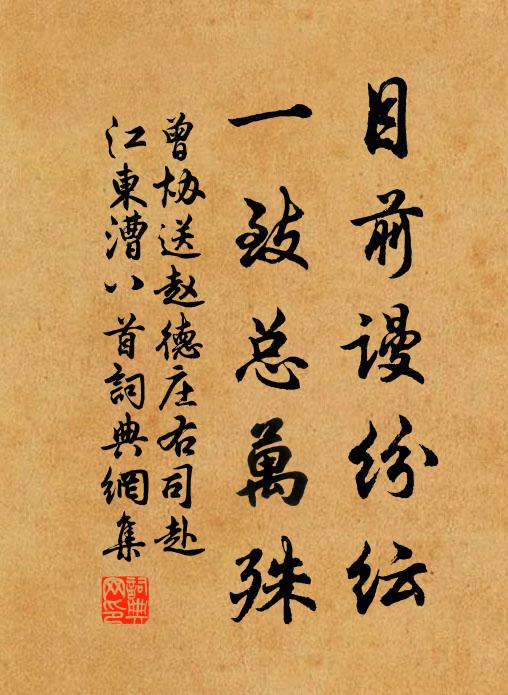 目前谩纷纭
一致总萬殊
曾协送赵德庄右司赴
江東漕八首詞典網集
詞典网印